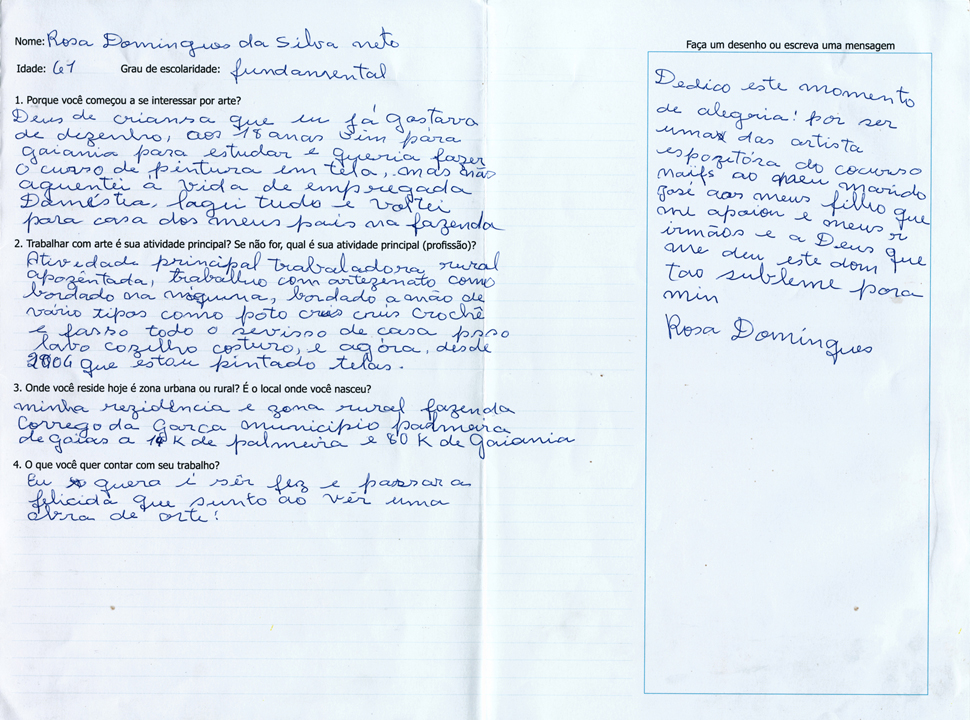 Nome: Rosa Domingues da Silva neto
Idade: 61 Grau de escolaridade: fundamental
1. Porque você começou a se interessar por arte?
Deus de criansa que eu já gostava
de dezenho, aos 18 anos vim para
gaiania para estudar e queria fazer
o curso de pintura em tela, mas não
aguentei a vida de empregada
Daméstia, lagui tudo e voltei
para casa dos meus pais na fazenda
2. Trabalhar com arte é sua atividade principal? Se não for, qual é sua atividade principal (profissão)?
Atividade principal trabaladora rural
apozêntada, trabalho com artezenato como
bordado na máquina, bordado a mão de
vário tipos como pôto crus crochê
e fasso todo o servisso de casa passo
lavo cozilho costuro, e agóra, desde
2004 que estou pintado telas.
3. Onde você reside hoje é zona urbana ou rural? É o local onde você nasceu?
minha rezidência e zona rural fazenda
Corrego da Garça municipio palmeira
de goias a 14 K de palmeira e 80 K de Goiania
4. O que você quer contar com seu trabalho?
Eu quera i sêr fez e passar a
felicida que sunto ao vêr uma
obra de arte!
Faça um desenho ou escreva uma mensagem
Dedico este momento
de alegria! por ser
uma das artista
espozitóra do cocurso
naifs ao meu marido
José aos meus filho que
me apoiou e meus
irmãos e a Deus que
me deu este dom
tao subleme para
min
Rosa Domingues